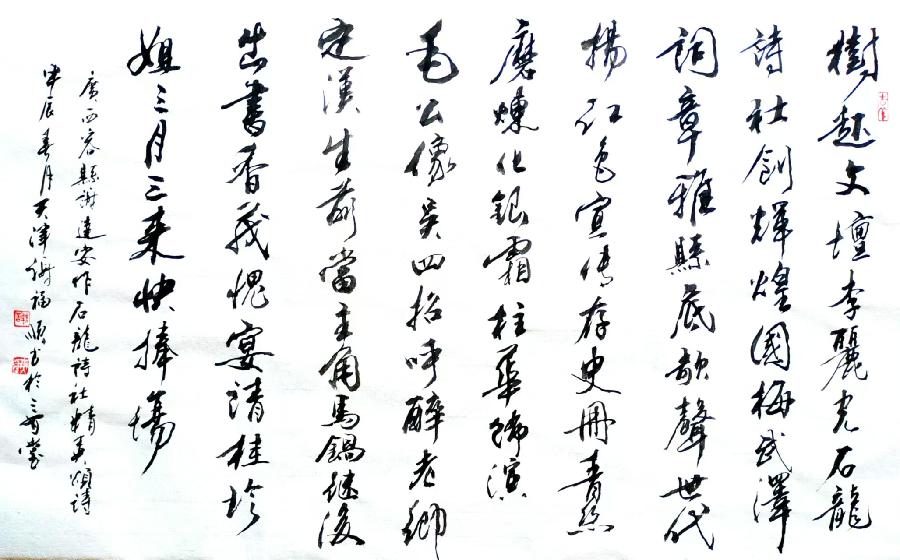 樹起文壇李麗光石龍
詩社創輝煌國梅武澤
詞章雅縣底歌聲世代
揚江色宣傳存史冊青絲
磨煉化銀霜柱華飾演
毛公像吳四招呼醉老鄉
定漢生前當主角馬鍋継後
出書香我愧宴請桂珍
姐三月三来快捧場
廣西容縣謝達安作石龍詩社精英頌詩
甲辰春月天津謝福順书於三賢堂